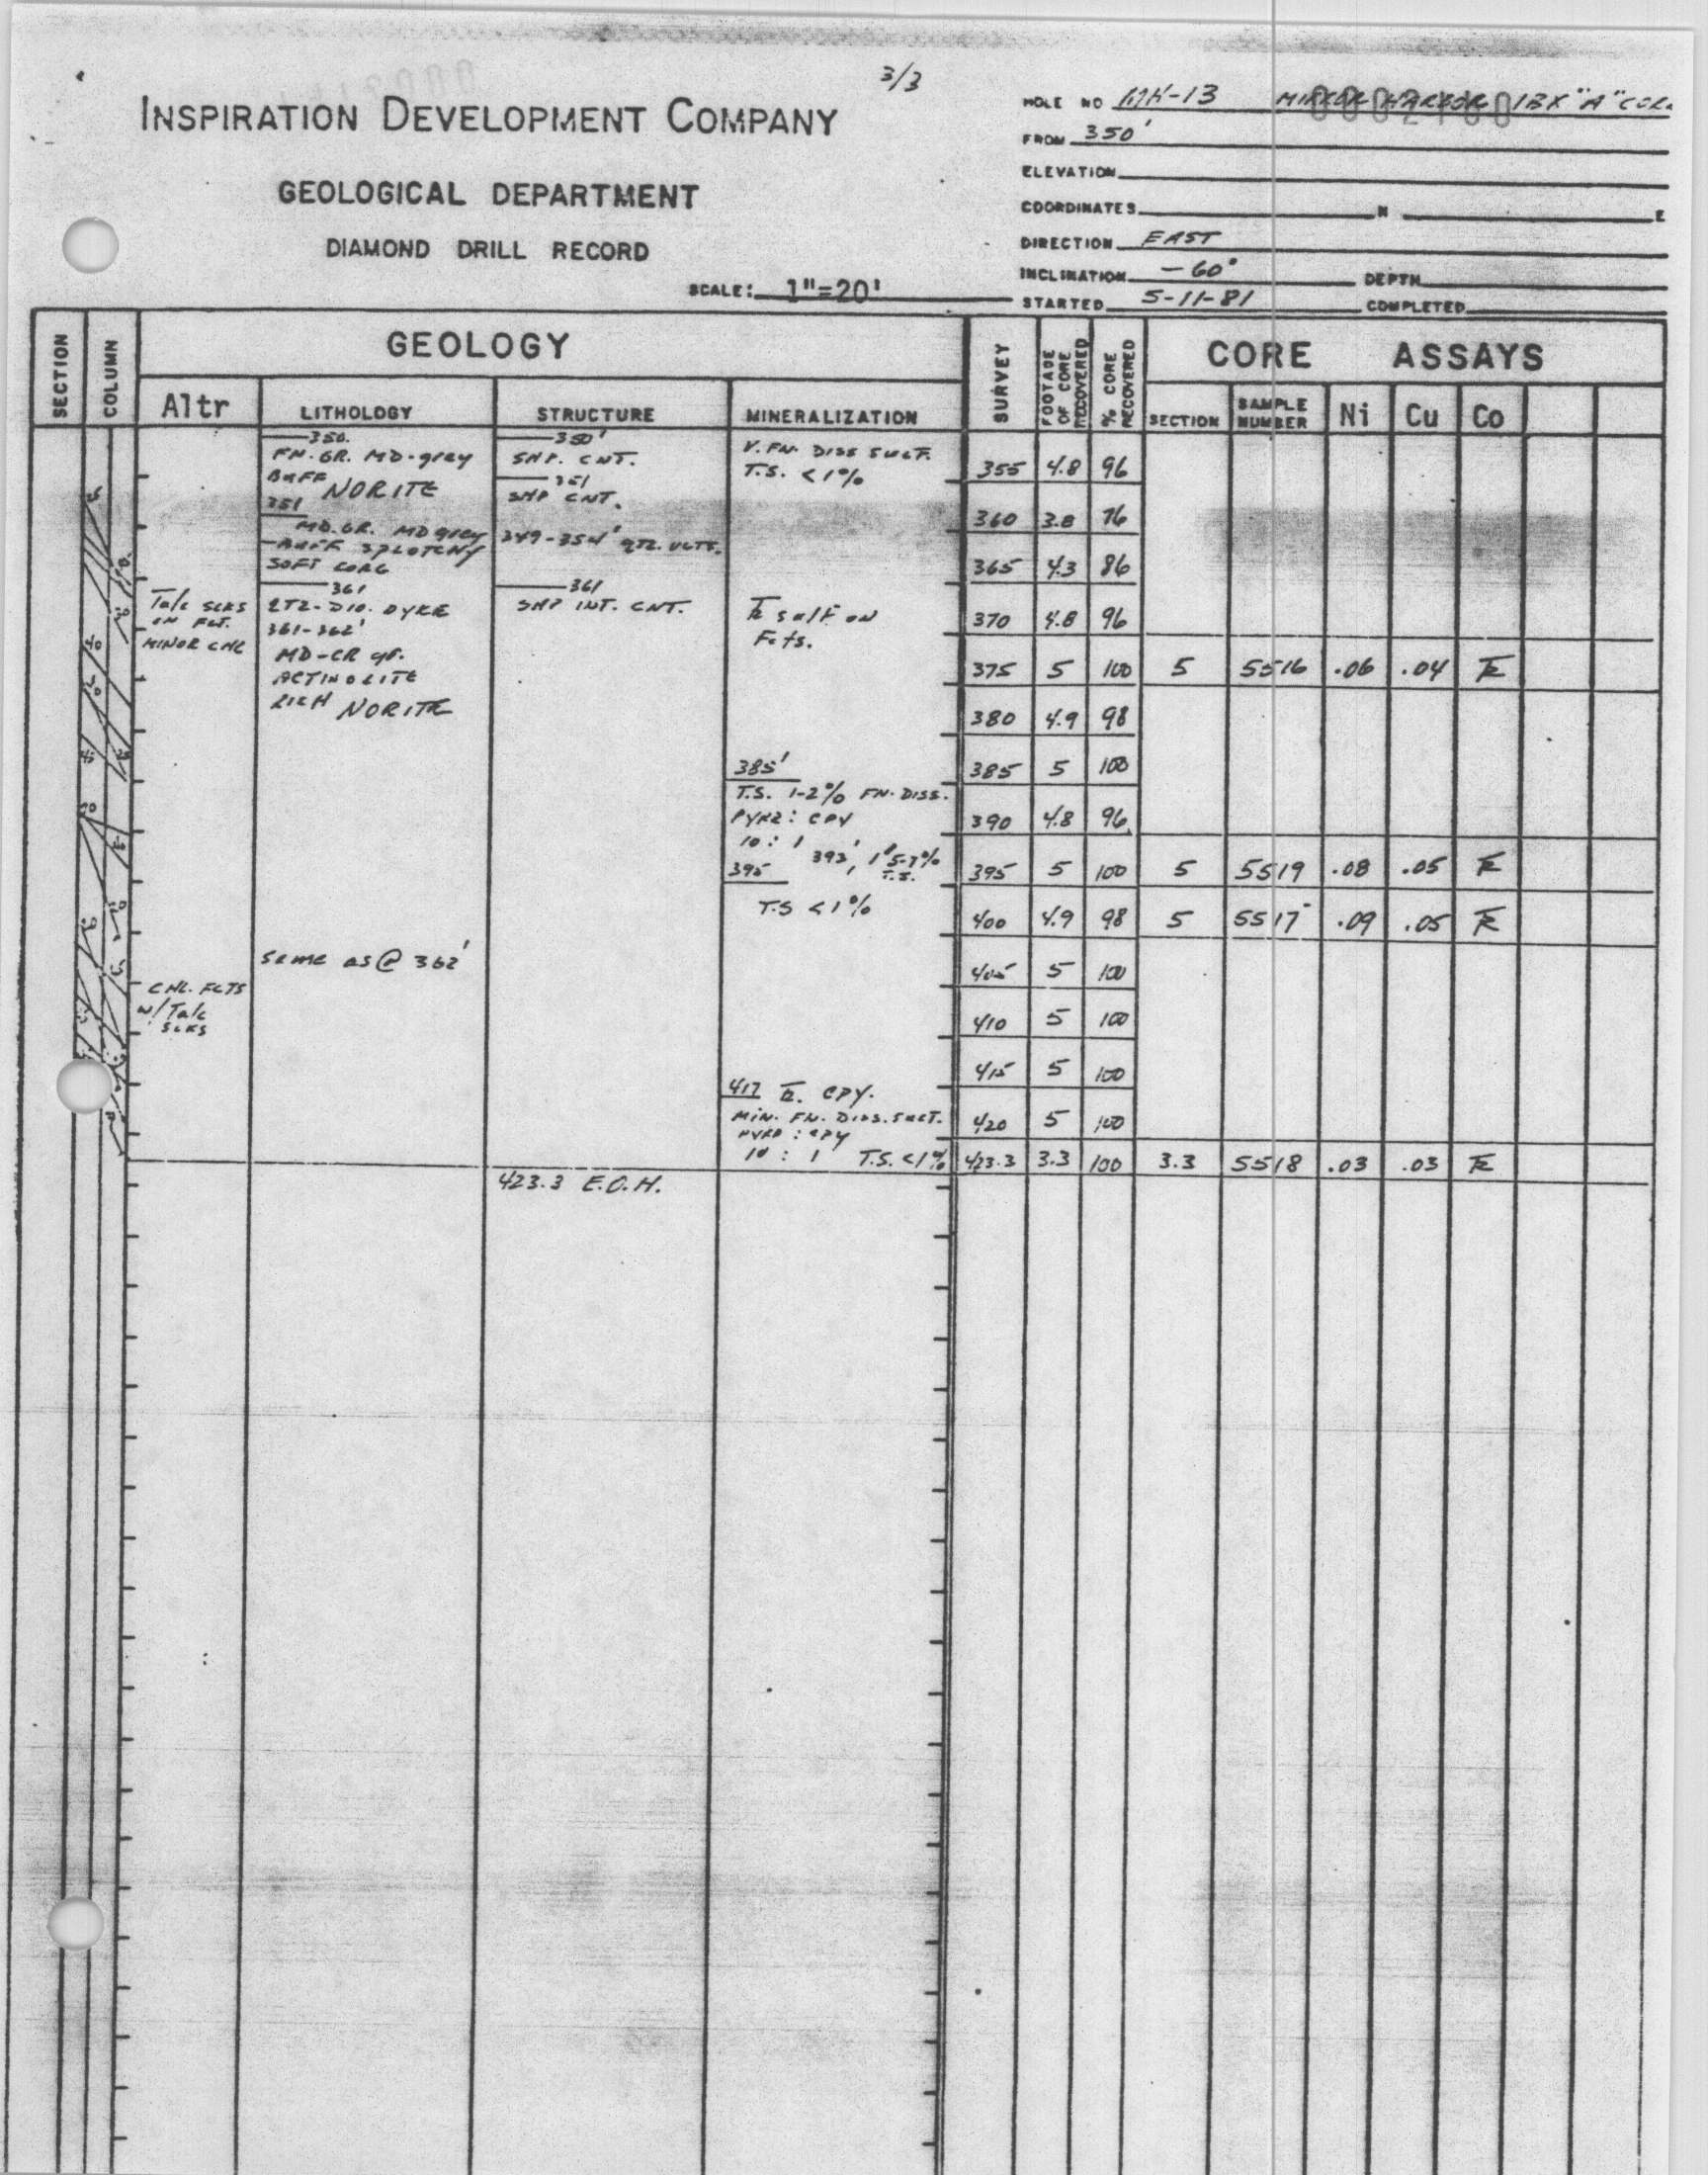 3/3
INSPIRATION DEVELOPMENT COMPANY
GEOLOGICAL DEPARTMENT
DIAMOND DRILL RECORD
SCALE: 1"=20'
HOLE NO MH-13 MIRROR HARBOR IBX "A" CORE
0002100
FROM 350'
ELEVATION
COORDINATES N E
DIRECTION EAST
INCLINATION -60° DEPTH
STARTED 5-11-81 COMPLETED
SECTION
COLUMN
GEOLOGY
Altr
LITHOLOGY
STRUCTURE
MINERALIZATION
SURVEY
FOOTAGE OF CORE RECOVERED
% CORE RECOVERED
CORE ASSAYS
SECTION
SAMPLE NUMBER
Ni
Cu
Co
Talc SLKS
ON FLT.
MINOR CHL
CHL. FLTS
w/Talc
SLKS
350.
FN. GR. MD-grey
BUFF NORITE
351
MD. GR. MD grey
-BUFF SPLOTCHY
SOFT CORE
361
QTZ-DIO. DYKE
361-362'
MD-CR gr.
ACTINOLITE
RICH NORITE
same as @ 362'
350'
SHP. CNT.
351
SHP CNT.
349-354' QTZ. VLTS.
361
SHP INT. CNT.
423.3 E.O.H.
V. FN. DISS SULF.
T.S. <1%
Tr sulf on
Fcts.
385'
T.S. 1-2% FN. DISS.
PYRR: CPY
10 : 1 393', 1" 5-7%
T.S.
395
T.S <1%
417 Tr. CPY.
MIN. FN. DISS. SULT.
PYRR : CPY
10 : 1 T.S. <1%
355 4.8 96
360 3.8 76
365 4.3 86
370 4.8 96
375 5 100 5 5516 .06 .04 Tr
380 4.9 98
385 5 100
390 4.8 96
395 5 100 5 5519 .08 .05 Tr
400 4.9 98 5 5517 .09 .05 Tr
405 5 100
410 5 100
415 5 100
420 5 100
423.3 3.3 100 3.3 5518 .03 .03 Tr